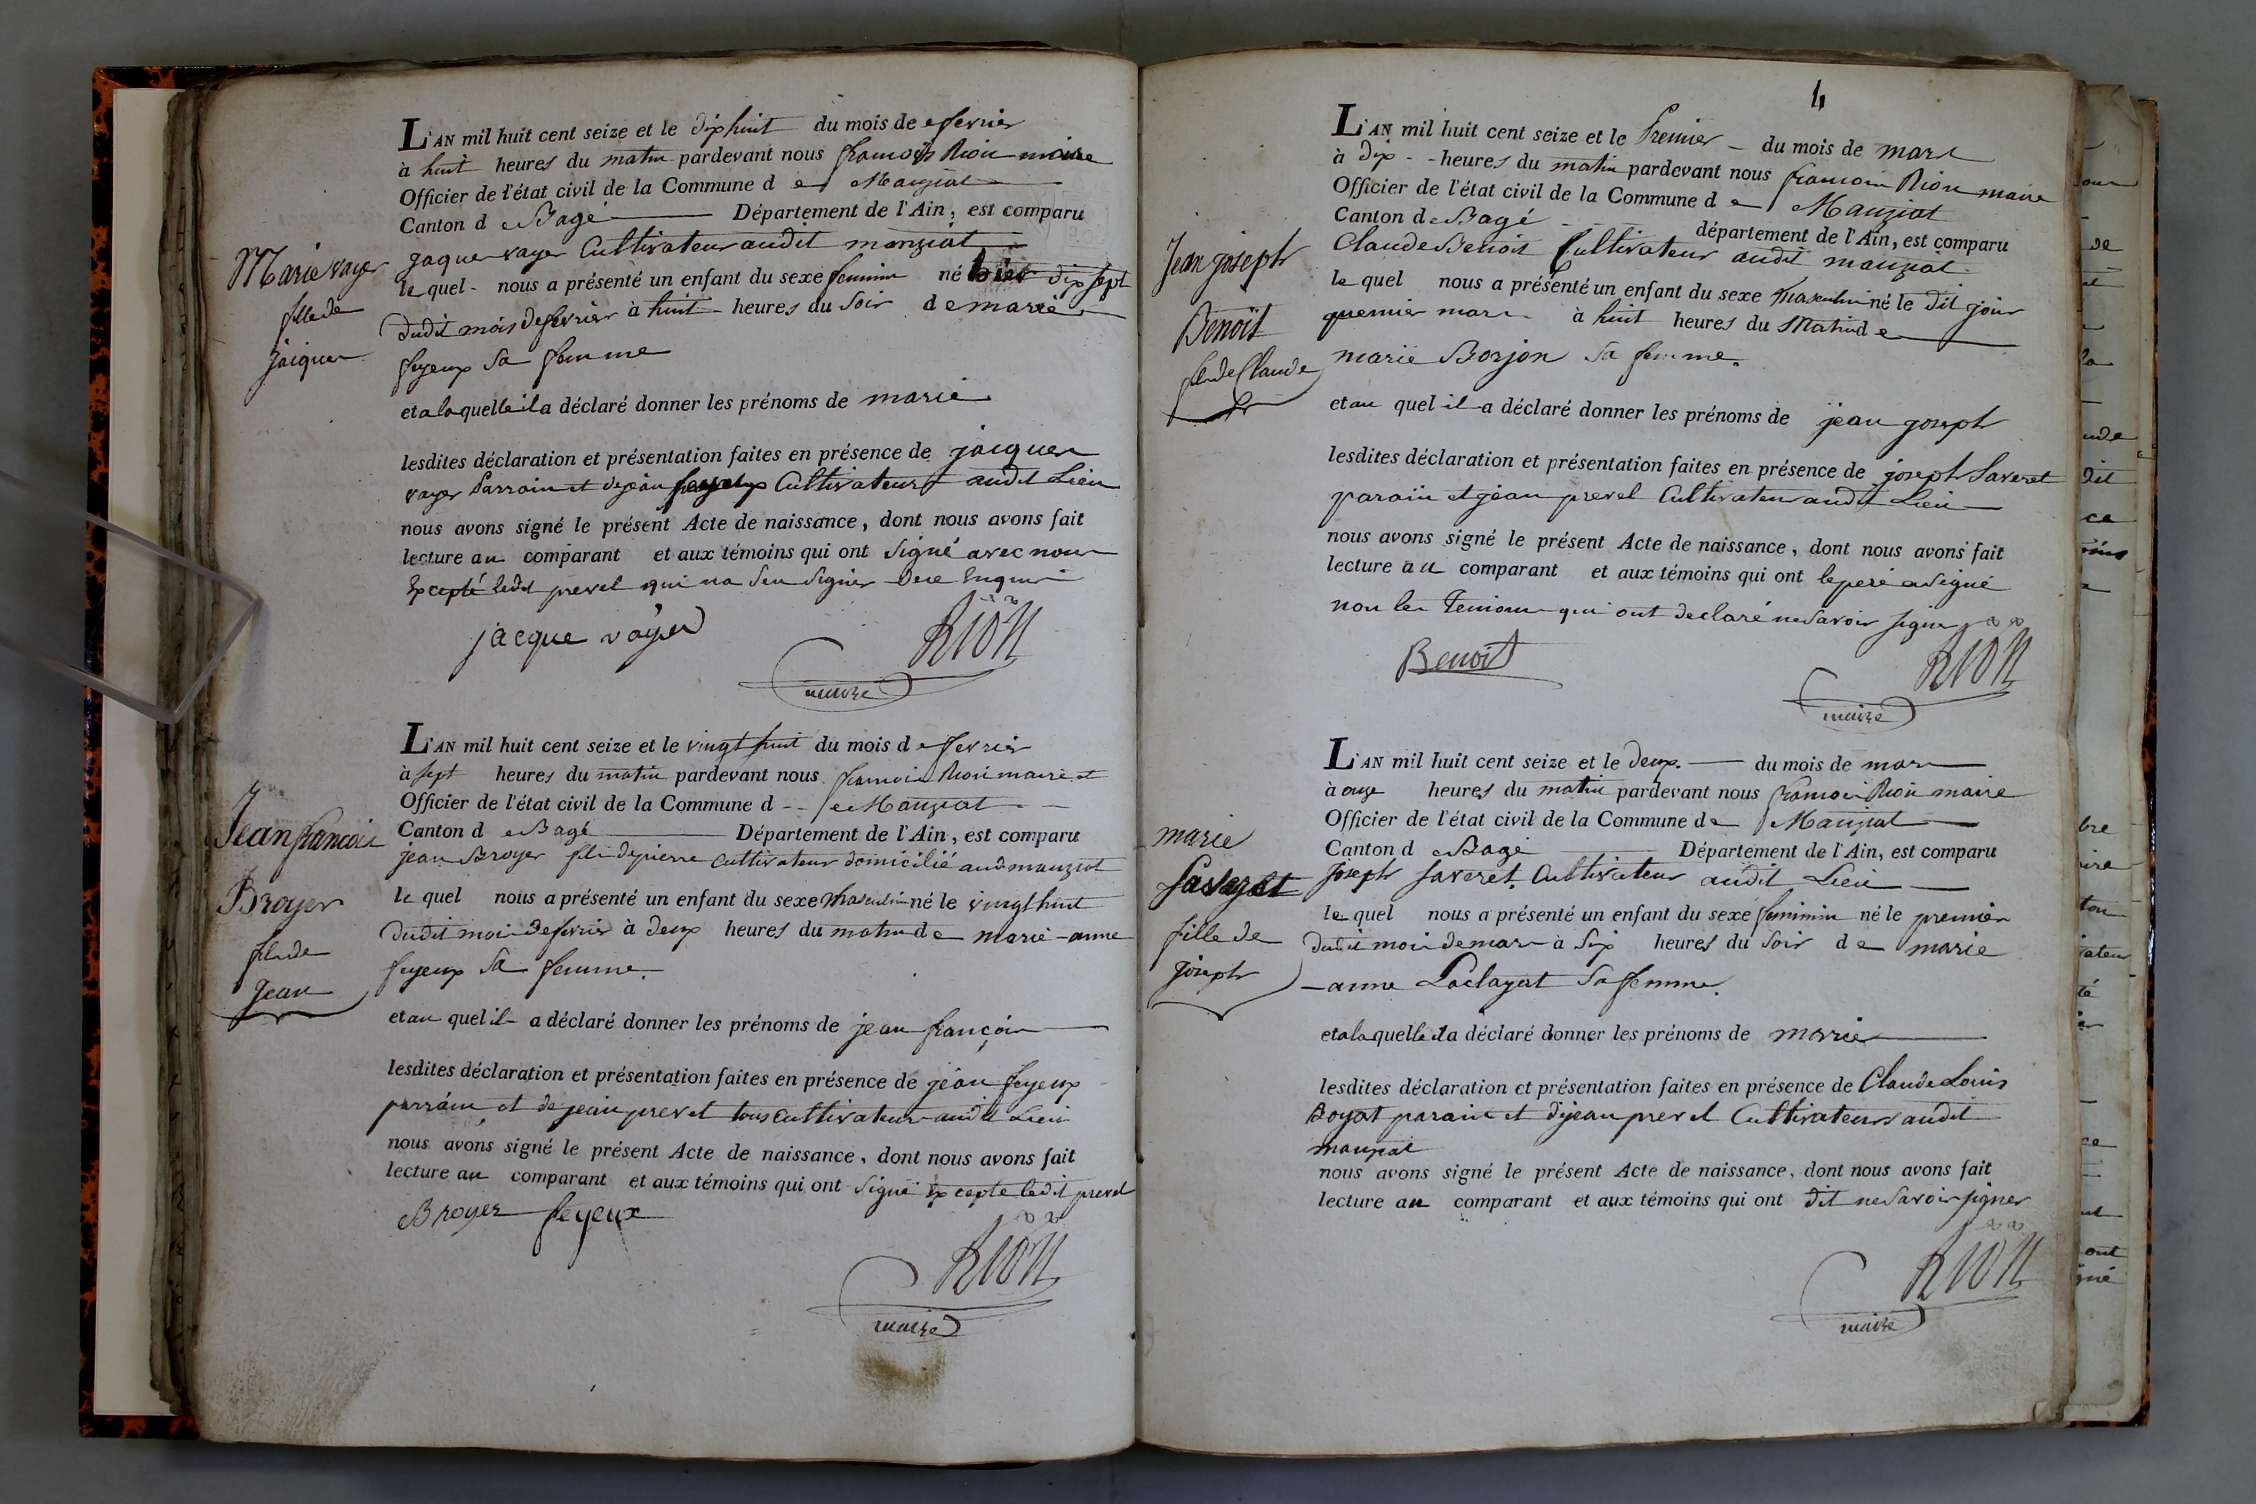 L'AN mil huit cent seize et le dix huit du mois de fevrier
à huit heures du matin pardevant nous françois Rion maire
Officier de l'état civil de la Commune de Manziat
Canton de Bagé Département de l'Ain, est comparu
jaque vayer Cultivateur audit manziat
le quel nous a présenté un enfant du sexe feminin né hier dix sept
dudit mois de fevrier à huit heures du soir de marie
feyeux sa femme
et a laquelle il a déclaré donner les prénoms de marie
lesdites déclaration et présentation faites en présence de jacques
vayer Parrain et de jean feyeux Cultivateurs audit Lieu
nous avons signé le présent Acte de naissance, dont nous avons fait
lecture au comparant et aux témoins qui ont signé avec nous
Excepté ledit prevel qui na seu signer De ce Enquis
jacque vayer Rion
maire
Marie vayer
fille de
jaiques
L'AN mil huit cent seize et le vingt huit du mois de fevrier
à sept heures du matin pardevant nous francois Rion maire et
Officier de l'état civil de la Commune de Manziat
Canton de Bagé Département de l'Ain, est comparu
jean Broyer fils de pierre cultivateur domicilié aud manziat
le quel nous a présenté un enfant du sexe masculin né le vingt huit
dudit moi de fevrier à deux heures du matin de marie-anne
feyeux sa femme.
et au quel il a déclaré donner les prénoms de jean françois
lesdites déclaration et présentation faites en présence de jean feyeux
parrain et de jean prevel tous cultivateurs audit Lieu
nous avons signé le présent Acte de naissance, dont nous avons fait
lecture au comparant et aux témoins qui ont signé Excepte ledit prevel
Broyer feyeux
Rion
maire
Jean francois
Broyer
fils de
Jean
4
L'AN mil huit cent seize et le Premier du mois de mars
à dix heures du matin pardevant nous francois Rion maire
Officier de l'état civil de la Commune de Manziat
Canton de Bagé département de l'Ain, est comparu
Claude Benoit Cultivateur audit manziat
le quel nous a présenté un enfant du sexe masculin né le dit jour
premier mars à huit heures du Matin de
marie Borjon sa femme.
et au quel il a déclaré donner les prénoms de jean joseph
lesdites déclaration et présentation faites en présence de joseph Saveret
parain et jean prevel Cultivateur audit Lieu
nous avons signé le présent Acte de naissance, dont nous avons fait
lecture au comparant et aux témoins qui ont le pere a signé
non les Temions qui ont declaré ne savoir signer
Benoit Rion
maire
Jean joseph
Benoît
fils de Claude
L'AN mil huit cent seize et le deux du mois de mars
à onze heures du matin pardevant nous francois Rion maire
Officier de l'état civil de la Commune de Manziat
Canton de Bagé Département de l'Ain, est comparu
Joseph Saveret Cultivateur audit Lieu
le quel nous a présenté un enfant du sexe feminin né le premier
dudit moi de mars à six heures du soir de marie
-anne Laclayat sa femme.
et a laquelle il a déclaré donner les prénoms de marie
lesdites déclaration et présentation faites en présence de Claude Louis
Boyat parain et de jean prevel Cultivateurs audit
manziat
nous avons signé le présent Acte de naissance, dont nous avons fait
lecture au comparant et aux témoins qui ont dit ne savoir signer
Rion
maire
marie
Saveret
fille de
Joseph